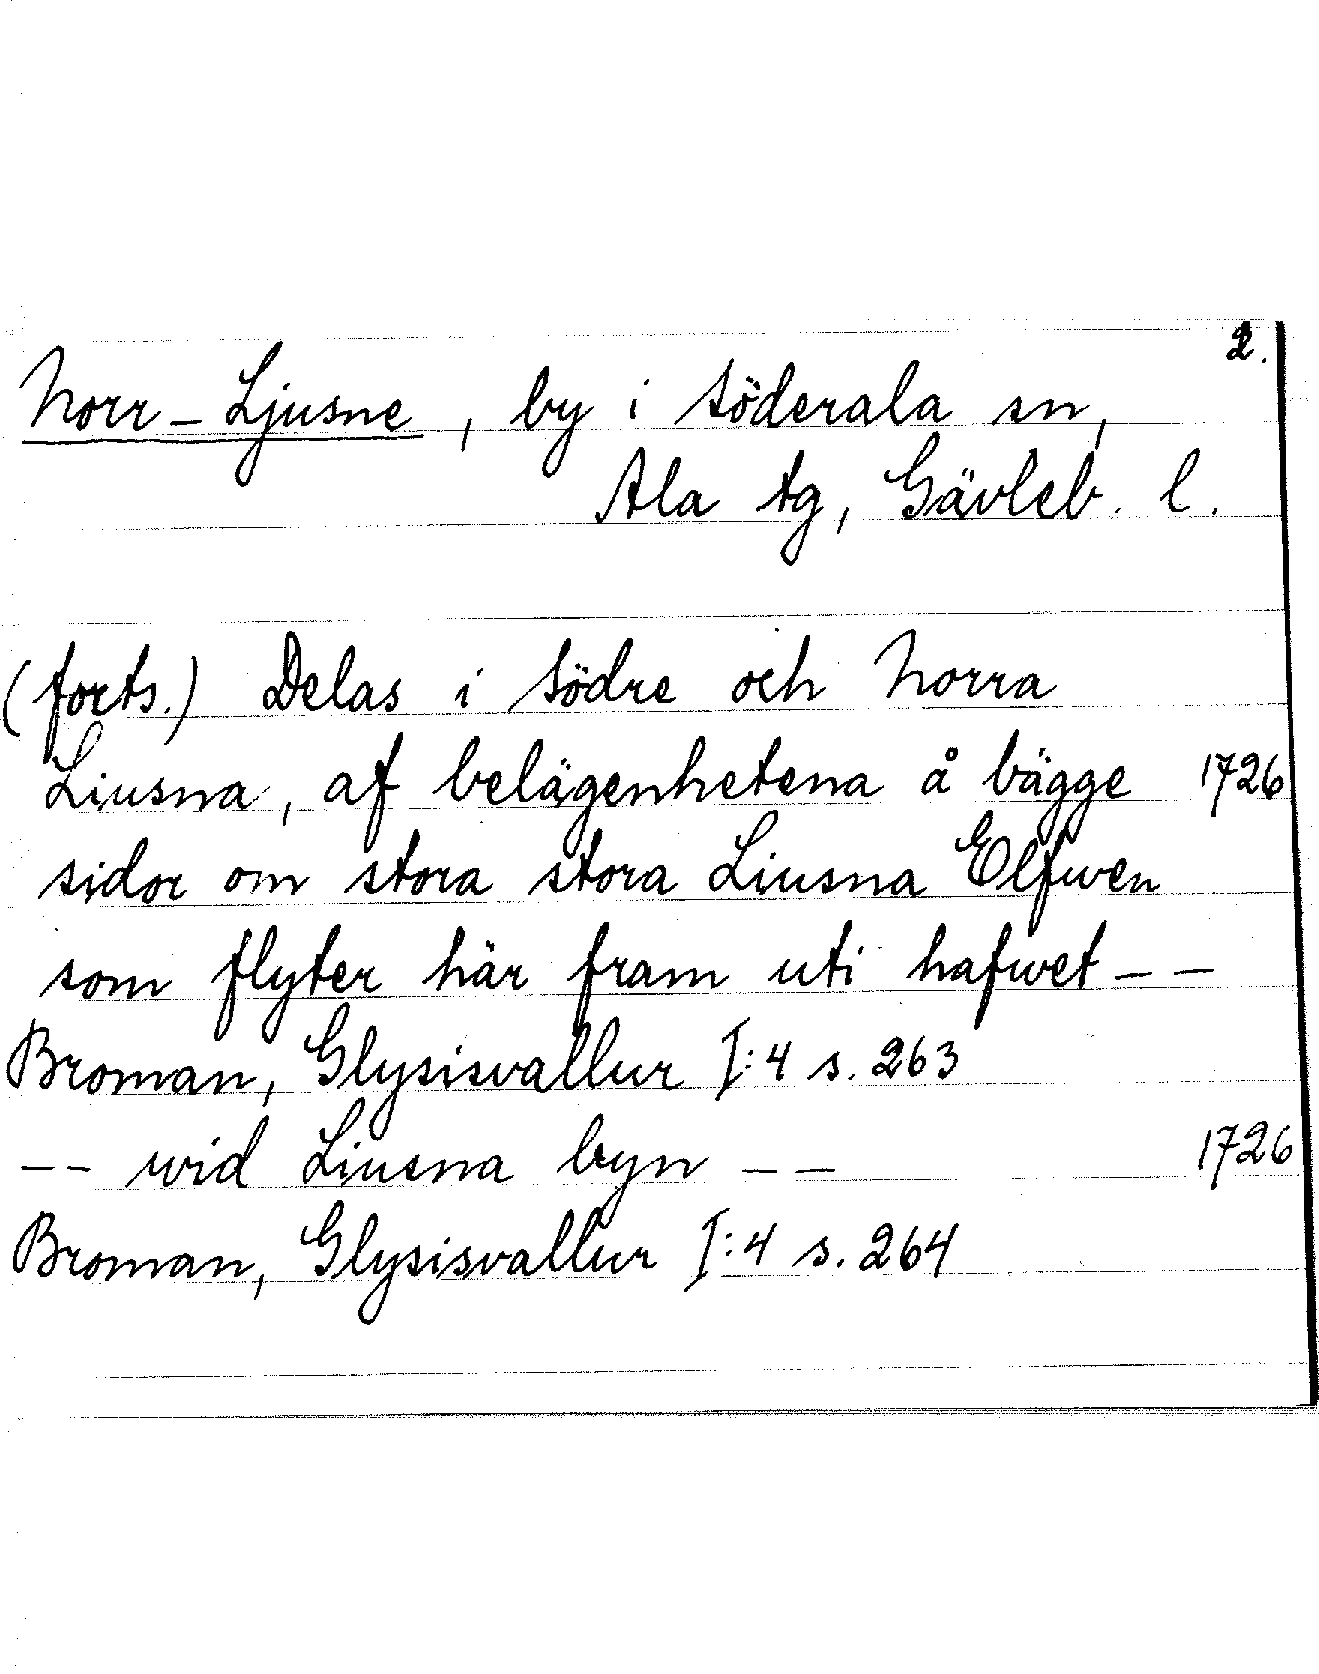 2.
Norr-Ljusne, by i Söderala sn,
Ala tg, Gävleb. l.
(forts.) Delas i Södre och Norra
Liusna, af belägenhetena å bägge 1726
sidor om stora stora Liusna Elfwen
som flyter här fram uti hafwet--
Broman, Glysisvallur I:4 s. 263
-- wid Liusna byn -- 1726
Broman, Glysisvallur I:4 s. 264